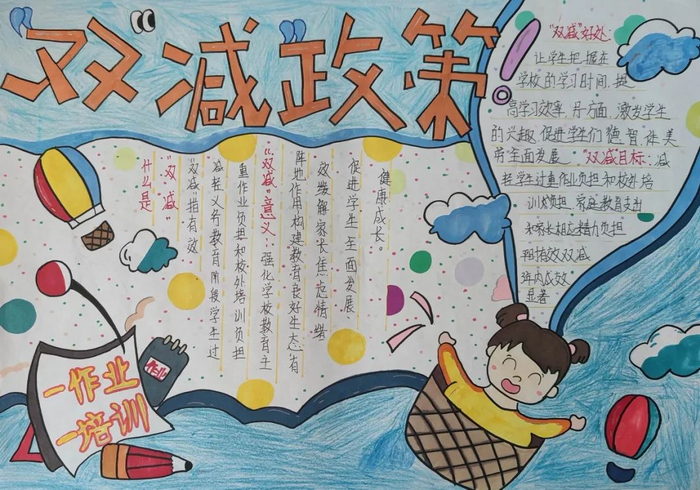 “双减”政策
什么是
“双减”
“双减”指有效
减轻义务教育阶段学生过
重作业负担和校外培训负担
“双减”意义：强化学校教育主
阵地作用构建教育良好生态有
效缓解家长焦虑情绪
促进学生全面发展
健康成长。
“双减”好处：
让学生把握在
学校的学习时间，提
高学习效率，另方面，激发学生
的兴趣 促进学生们 德，智，体，美
劳全面发展 “双减”目标：减
轻学生过重作业负担和校外培
训负担、家庭教育支出
和家长相应精力负担
双减
年内成效
显著
作业
一作业
一培训